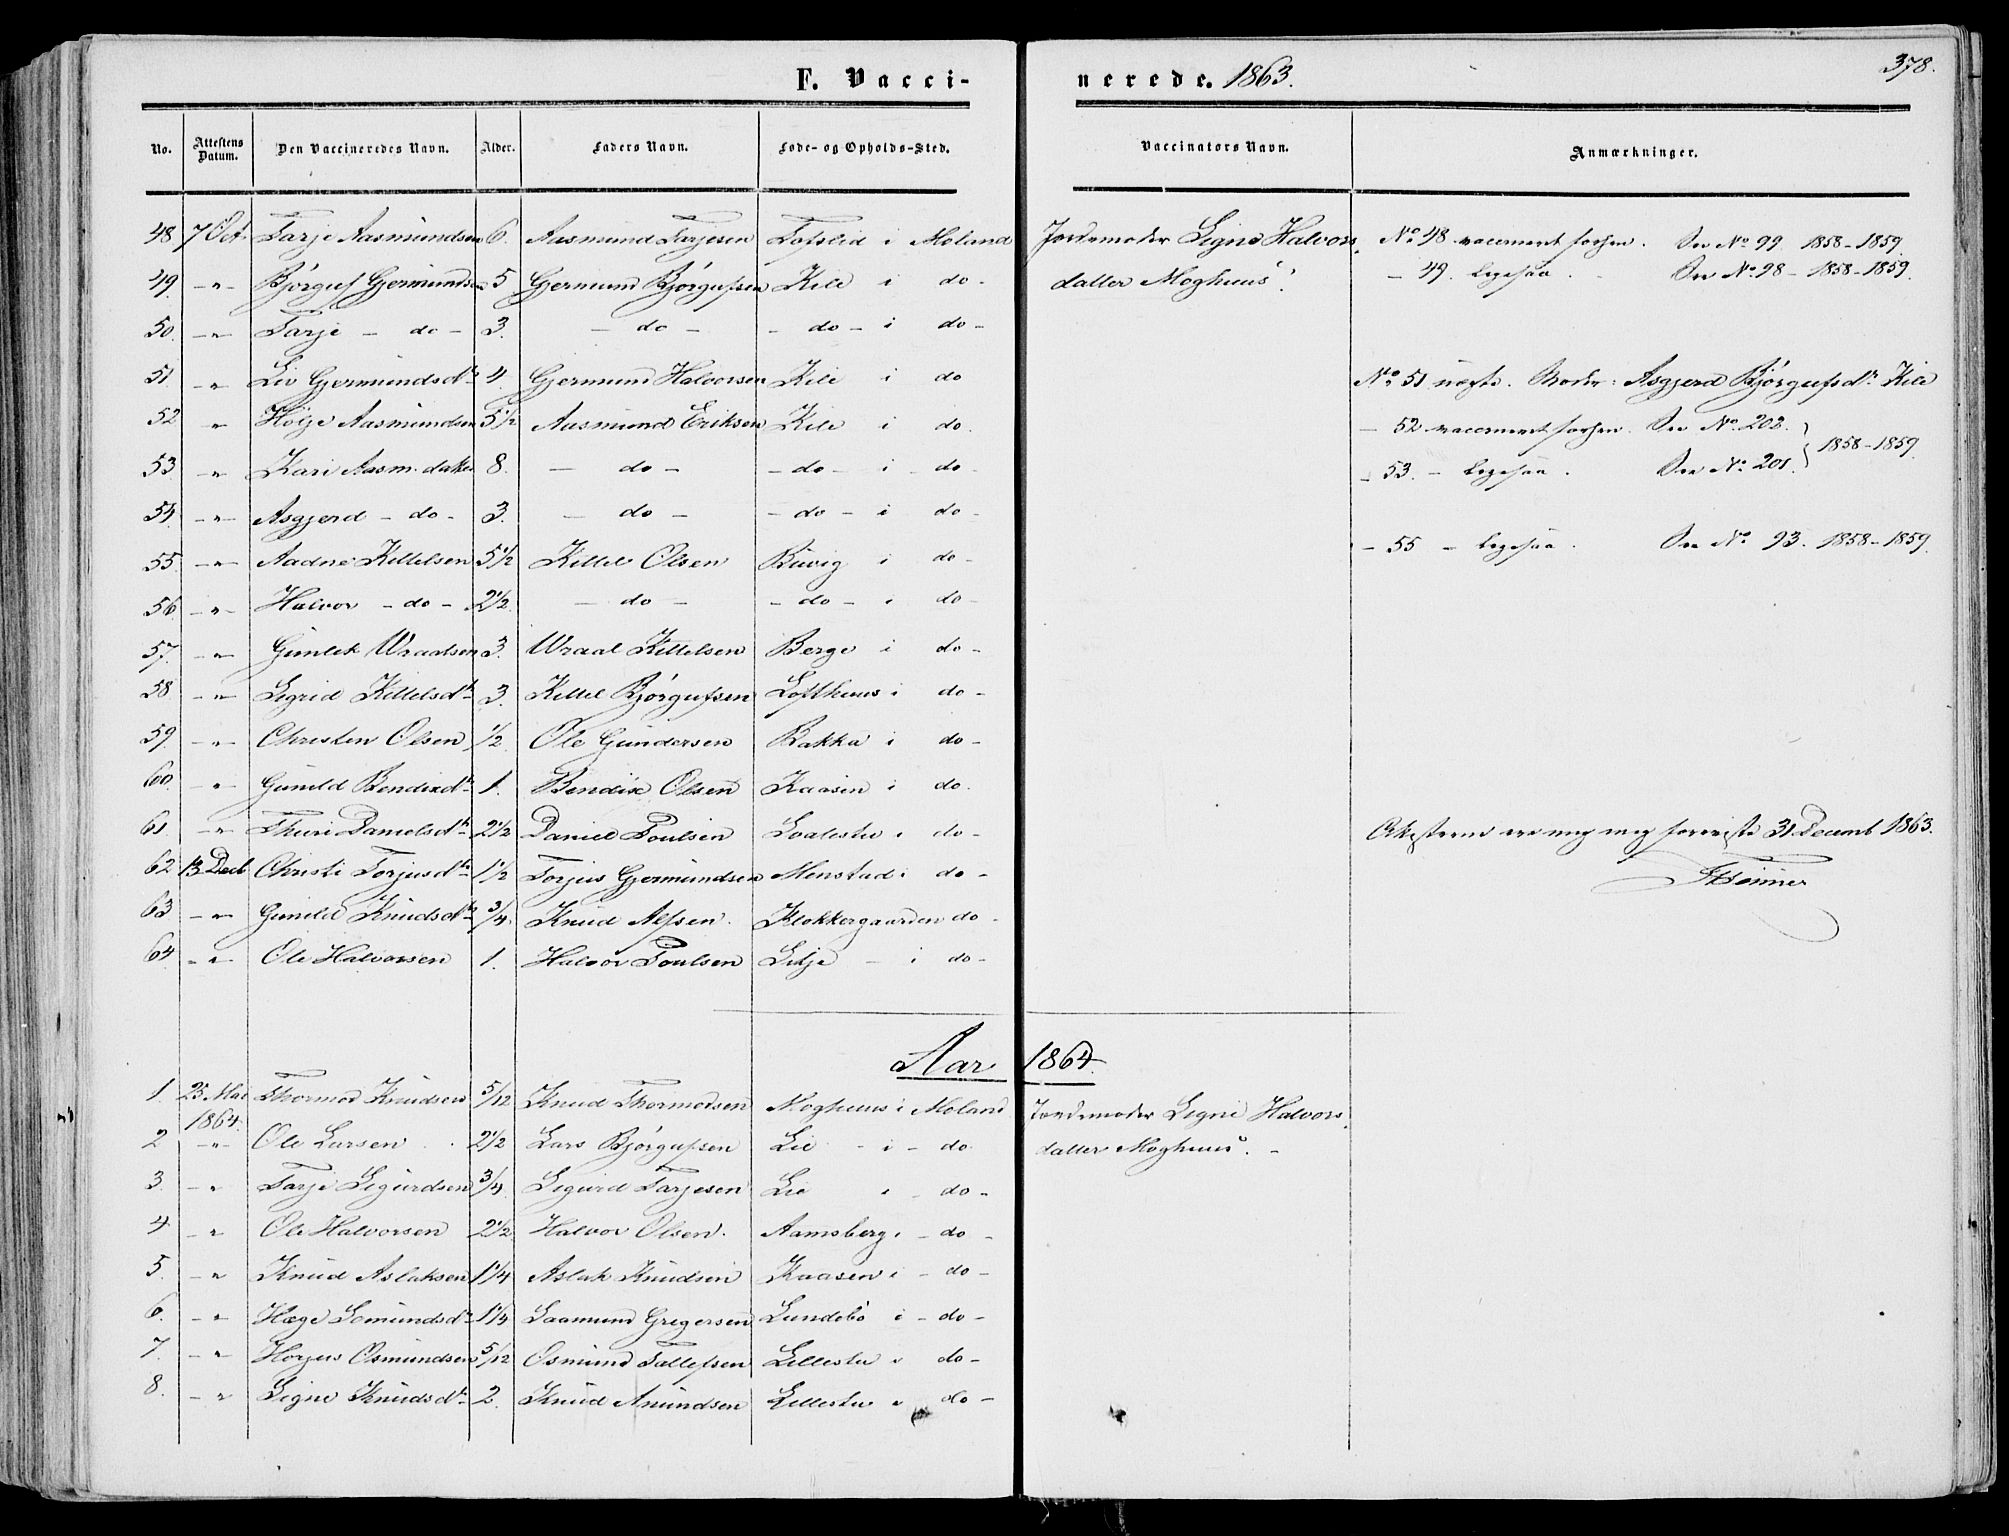 378.
F. Vaccinerede. 1863.
No. Attestens Datum. Den Vaccineredes Navn. Alder. Faders Navn. Føde- og Opholds-Sted. Vaccinators Navn. Anmærkninger.
48 7 Oct. Tarje Aasmundsen 6. Aasmund Tarjesen Tofslid i Moland Jordemoder Signe Halvors N° 48 vaccineret forhen. See N° 99 1858-1859
49 -"- Bjørguf Gjermundsen 5 Gjermund Bjørgufsen Kile i do- datter Moghuus. - 49. ligesaa. See N° 98 - 1858-1859.
50 -"- Tarje - do - 3. - do - - do - i do-
51 -"- Liv Gjermundsdtr 4. Gjermund Halvorsen Kile i do N° 51 uægte. Moder: Asgjerd Bjørgufsdtr Kile
52 " Hølje Aasmundsen 5 1/2 Aasmund Eriksen Kile i do. - 52 vaccineret forhen. See N° 202. } 1858-1859
53 -"- Kari Aasm.datter 8. - do - - do - i do- - 53. - ligesaa. See N° 201.
54 -"- Asgjerd - do - 3. - do - - do - i do-
55 -"- Aadne Kittelsen 5 1/2 Kittel Olsen Ruvig i do- - 55 - ligesaa. See N° 93. 1858-1859.
56 -"- Halvor - do - 2 1/2. - do - - do - i do-
57. -"- Gunlek Wraalsen 3. Wraal Kittelsen Berge i do-
58 -"- Sigrid Kittelsdtr 3. Kittel Bjørgufsen Lofthuus i do-
59 -"- Christen Olsen 1/2 Ole Gundersen Bakka i do-
60. -"- Gunild Bendixdtr 1. Bendix Olsen Kaasen i do.
61 -"- Thuri Danielsdtr 2 1/2 Daniel Poulsen i do- 31 Decemb 1863.
62 13 Decb Christi Torjusdtr 1 1/2 Torjus Gjermundsen Menstad i do-
63 -"- Gunild Knudsdtr 3/4. Knud Alfsen. Klokkergaarden do-
64 -"- Ole Halvorsen 1. Halvor Poulsen Litje - i do-
Aar 1864.
1. 25 Mai 1864. Thormod Knudsen 5/12 Knud Thormodsen Moghuus i Moland Jordemoder Signe Halvors
2 -"- Ole Larsen 2 1/2 Lars Bjørgufsen Lie - i - do datter Moghuus. -
3. -"- Tarje Sigurdsen 3/4 Sigurd Tarjesen Lie i - do -
4 -"- Ole Halvorsen 2 1/2 Halvor Olsen. Aamsberg i - do -
5. -"- Knud Aslaksen 1 1/4 Aslak Knudsen Kaasen i - do -
6. -"- Hæge Semundsdtr 1 1/4 Saamund Gregersen Lundebø i - do-
7. -"- Horjus Osmundsen 5/12 Osmund Tallefsen Lillestu i do-
8. -"- Signe Knudsdtr 2. Knud Anundsen Lillestu i do -